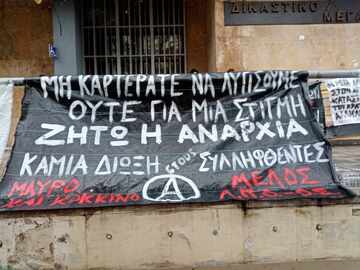 ΔΙΚΑΣΤΙΚΟ
ΜΕΓΑ
ΜΗ ΚΑΡΤΕΡΑΤΕ ΝΑ ΛΥΓΙΣΟΥΜΕ
ΟΥΤΕ ΓΙΑ ΜΙΑ ΣΤΙΓΜΗ
ΖΗΤΩ Η ΑΝΑΡΧΙΑ
ΚΑΜΙΑ ΔΙΩΞΗ στους ΣΥΛΛΗΦΘΕΝΤΕΣ
ΜΑΥΡΟ Α ΜΕΛΟΣ
ΚΑΙ ΚΟΚΚΙΝΟ